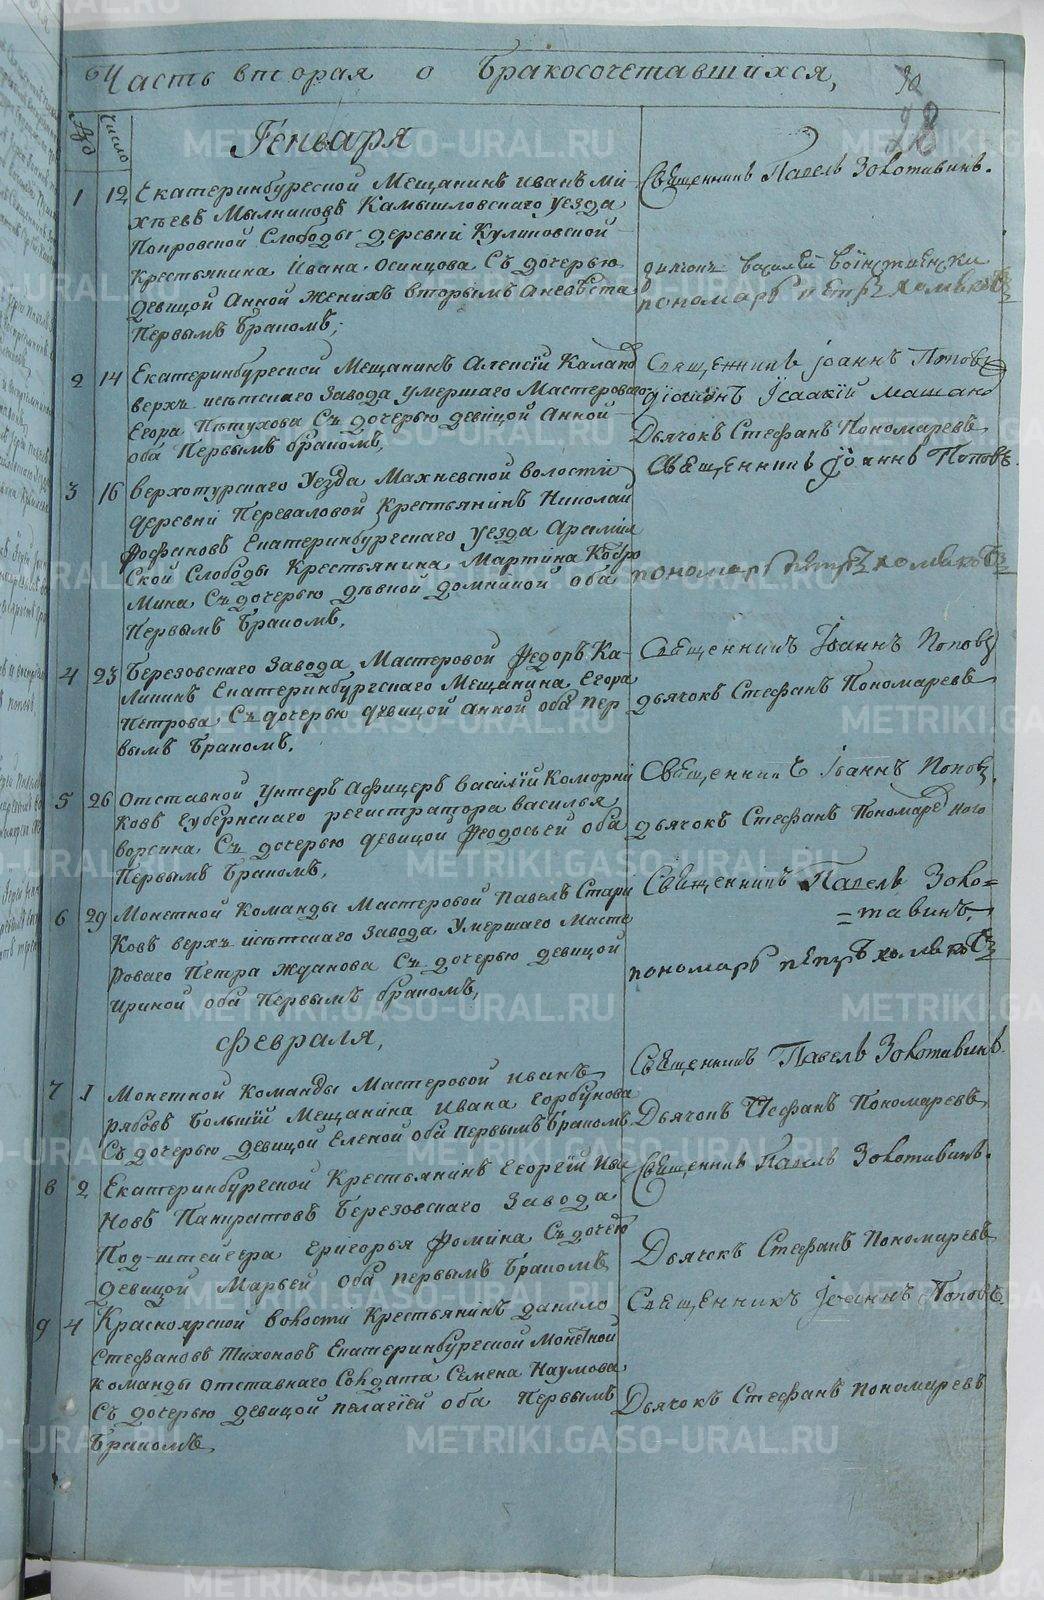 Часть вторая о Бракосочетавшихся,
30
28
число
Генваря
1 12 Екатеринбургской Мещанинъ иванъ Ми-
хѣевъ Мылниковъ Камышловскаго уезда
Покровской Слободы деревни Куликовской
Крестьянина Ивана Осинцова Съ дочерью
девицой Анной женихъ вторымъ аневѣста
Первымъ Бракомъ;
Священникъ Павелъ Золотавинъ.
пономарь петръ хомяковъ
2 14 Екатеринбургской Мещанинъ Алексiй
верхъ исѣтскаго Завода умершаго Мастероваго
Егора Пѣтухова Съ дочерью девiцой Анной
оба Первымъ бракомъ,
Священникъ Iоаннъ Поповъ
дiяконъ Iсаакiй
Дьячокъ Стефанъ Пономаревъ
3 16 верхотурскаго Уезда Махневской волости
деревни Переваловой Крестьянинъ Николай
Екатеринбургскаго уезда Арамил
ской Слободы Крестьянина Мартина Кобя
Мина Съ дочерью дѣвкой домникой оба
Первымъ Бракомъ,
Священникъ Iоаннъ Поповъ.
пономарь петръ хомяковъ
4 23 Березовскаго Завода Мастеровой Федоръ Ка-
Лининъ Екатеринбургскаго Мещанина Егора
Петрова Съ дочерью девицой Анной оба пер
вымъ Бракомъ,
Священникъ Iоаннъ Поповъ
дьячокъ Стефанъ Пономаревъ
5 26 Отставной Унтеръ Афицеръ Василiй Коморни
Ковъ Губернскаго регистратора василья
Съ дочерью девицой Феодосьей оба
Первымъ Бракомъ,
Священникъ Iоаннъ Поповъ.
дьячокъ Стефанъ
6 29 Монетной Команды Мастеровой Павелъ Стари
Ковъ верхъ исѣтскаго Завода Умершаго Масте
роваго Петра Жданова Съ дочерью девицой
Ириной оба Первымъ бракомъ,
Священникъ Павелъ Золо=
=тавинъ,
пономарь петръ хомяковъ
Февраля,
7 1 Монетной Команды Мастеровой иванъ
рябовъ Большiй Мещанина Ивана горбунова
Съ дочерью девицой Еленой оба первымъ Бракомъ
Священникъ Павелъ Золотавинъ
Дьячокъ Стефанъ Пономаревъ
8 2 Екатеринбургской Крестьянинъ Георгiй Ива
Новъ Панкратовъ Березовскаго Завода
Под-штейгера григорья Фомина Съ дочерью
девицой Марьей оба первымъ Бракомъ
Священникъ Павелъ Золотавинъ.
Дьячокъ Стефанъ Пономаревъ
9 4 Красноярской волости Крестьянинъ данило
Стефановъ Тихоновъ Екатеринбургской Монетной
Команды отставнаго Солдата Семена Наумова
Съ дочерью девицой пелагiей оба Первымъ
Бракомъ
Священникъ Iоаннъ Поповъ.
Дьячокъ Стефанъ пономаревъ
METRIKI.GASO-URAL.RU